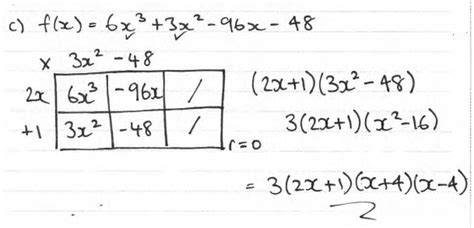 c) f(x) = 6x³ + 3x² - 96x - 48
x 3x² - 48
2x 6x³ -96x /
+1 3x² -48 /
r=0
(2x+1)(3x²-48)
3(2x+1)(x²-16)
= 3(2x+1)(x+4)(x-4)